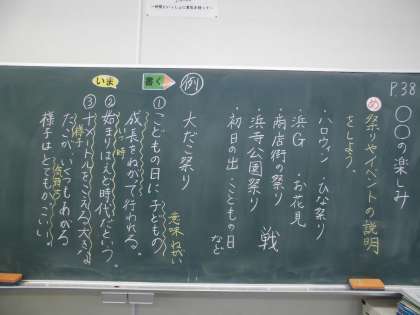 P38
○○の楽しみ
め 祭りやイベントの説明
をしよう。
・ハロウィン ・ひな祭り
・浜G ・お花見
・商店街の祭り
・浜寺公園祭り
・初日の出 ・こどもの日
など
戦
例
書く
いま
大だこ祭り
意味 ねがい
①こどもの日に子どもの
成長をねがって行われる。
いつ 時
②始まりは江戸時代という。
様子
③十メートルをこえる大きな
たこが、いくつもあがる
気持ち
様子はとてもかっこいい。